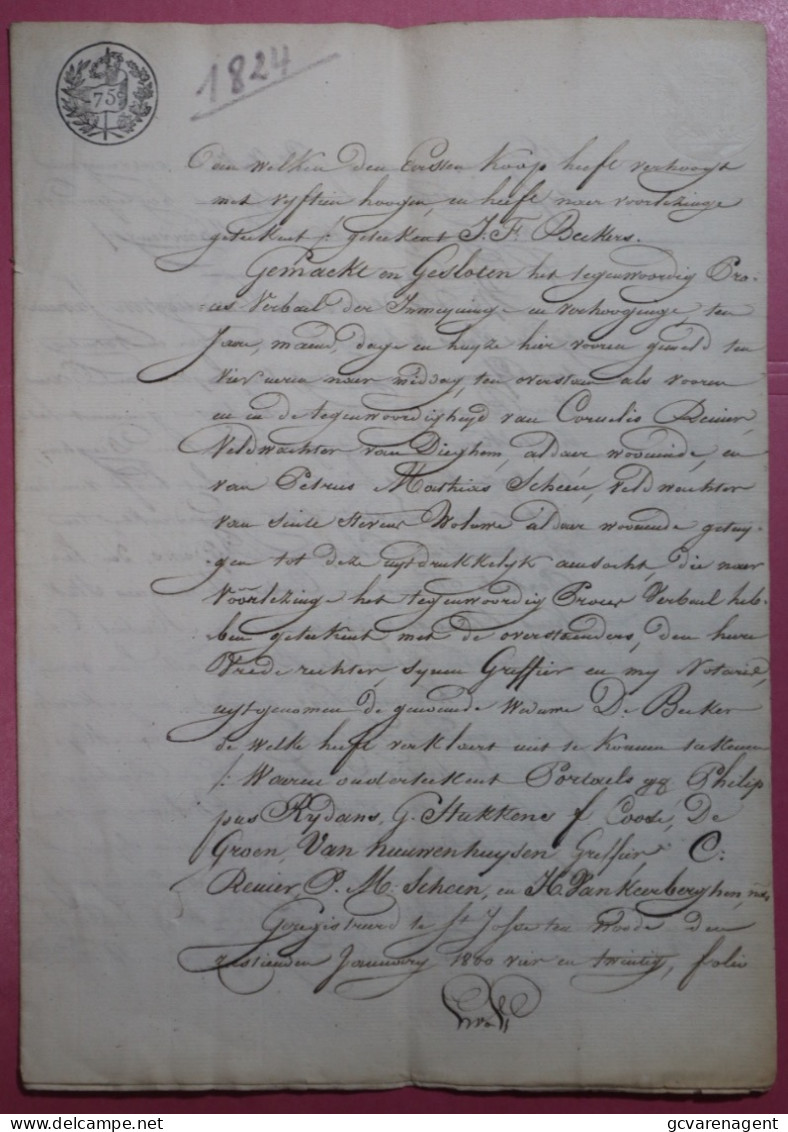 75
1824
den welken den Cassen Koop heeft verhoogt
met vyftien hoogen, en heeft naer voorlezinge
geteekent /: geteekent J. F. Beckers.
Gemaekt en Gesloten het tegenwoordig Pro-
=ces Verbael der Inmeyninge en verhooginge, ten
Jaere, maend, dage en huyze hier vooren gemeld ten
vier uren naer middag, ten overstaen als vooren
en in de tegenwoordigheyd van Cornelis Reniers,
Veldwachter van Dieghem, aldaer woonende, en
van Petrus Mathias Scheen, Veldwachter
van Sinte Stevens Woluwe aldaer woonende getuy-
gen tot deze uytdrukkelyk aensocht, die naer
Voorlezinge het tegenwoordig Proces Verbael heb-
ben geteekent met de overstaenders, den heere
Vrede rechter, synen Greffier en my Notaris,
uytgenomen de genoemde Weduwe De Becker
de welke heeft verklaert niet te konnen teekenen
/: Waeren onderteekent Portaels qq Philip
pus Rydans, G. Stukkens f Coose, De
Groen, Van nieuwenhuysen Greffier C:
Renier P. M: Scheen, en H. Van Keerberghen, nis.
Geregistreerd te St Josse ten Noode den
zestienden January 1800 vier en twintig, folio